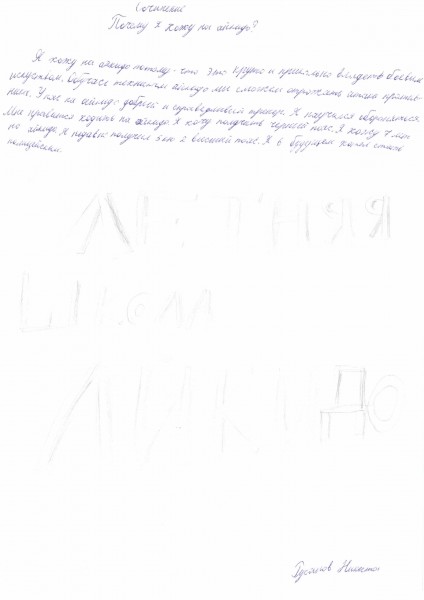 Сочинение
Почему я хожу на айкидо?
Я хожу на айкидо потому-что это круто и прикольно владеть боевым
искусством. техникам айкидо мы сможем отражать атаки против-
ника. У нас на айкидо добрый и справедливый тренер. Я научился обороняться.
Мне нравится ходить на айкидо. Я хочу получить черный пояс. Я хожу
на айкидо. Я недавно получил пояс. Я в будущем хочу стать
полицейским.
ЛЕТНЯЯ
ШКОЛА
АЙКИДО
Никита